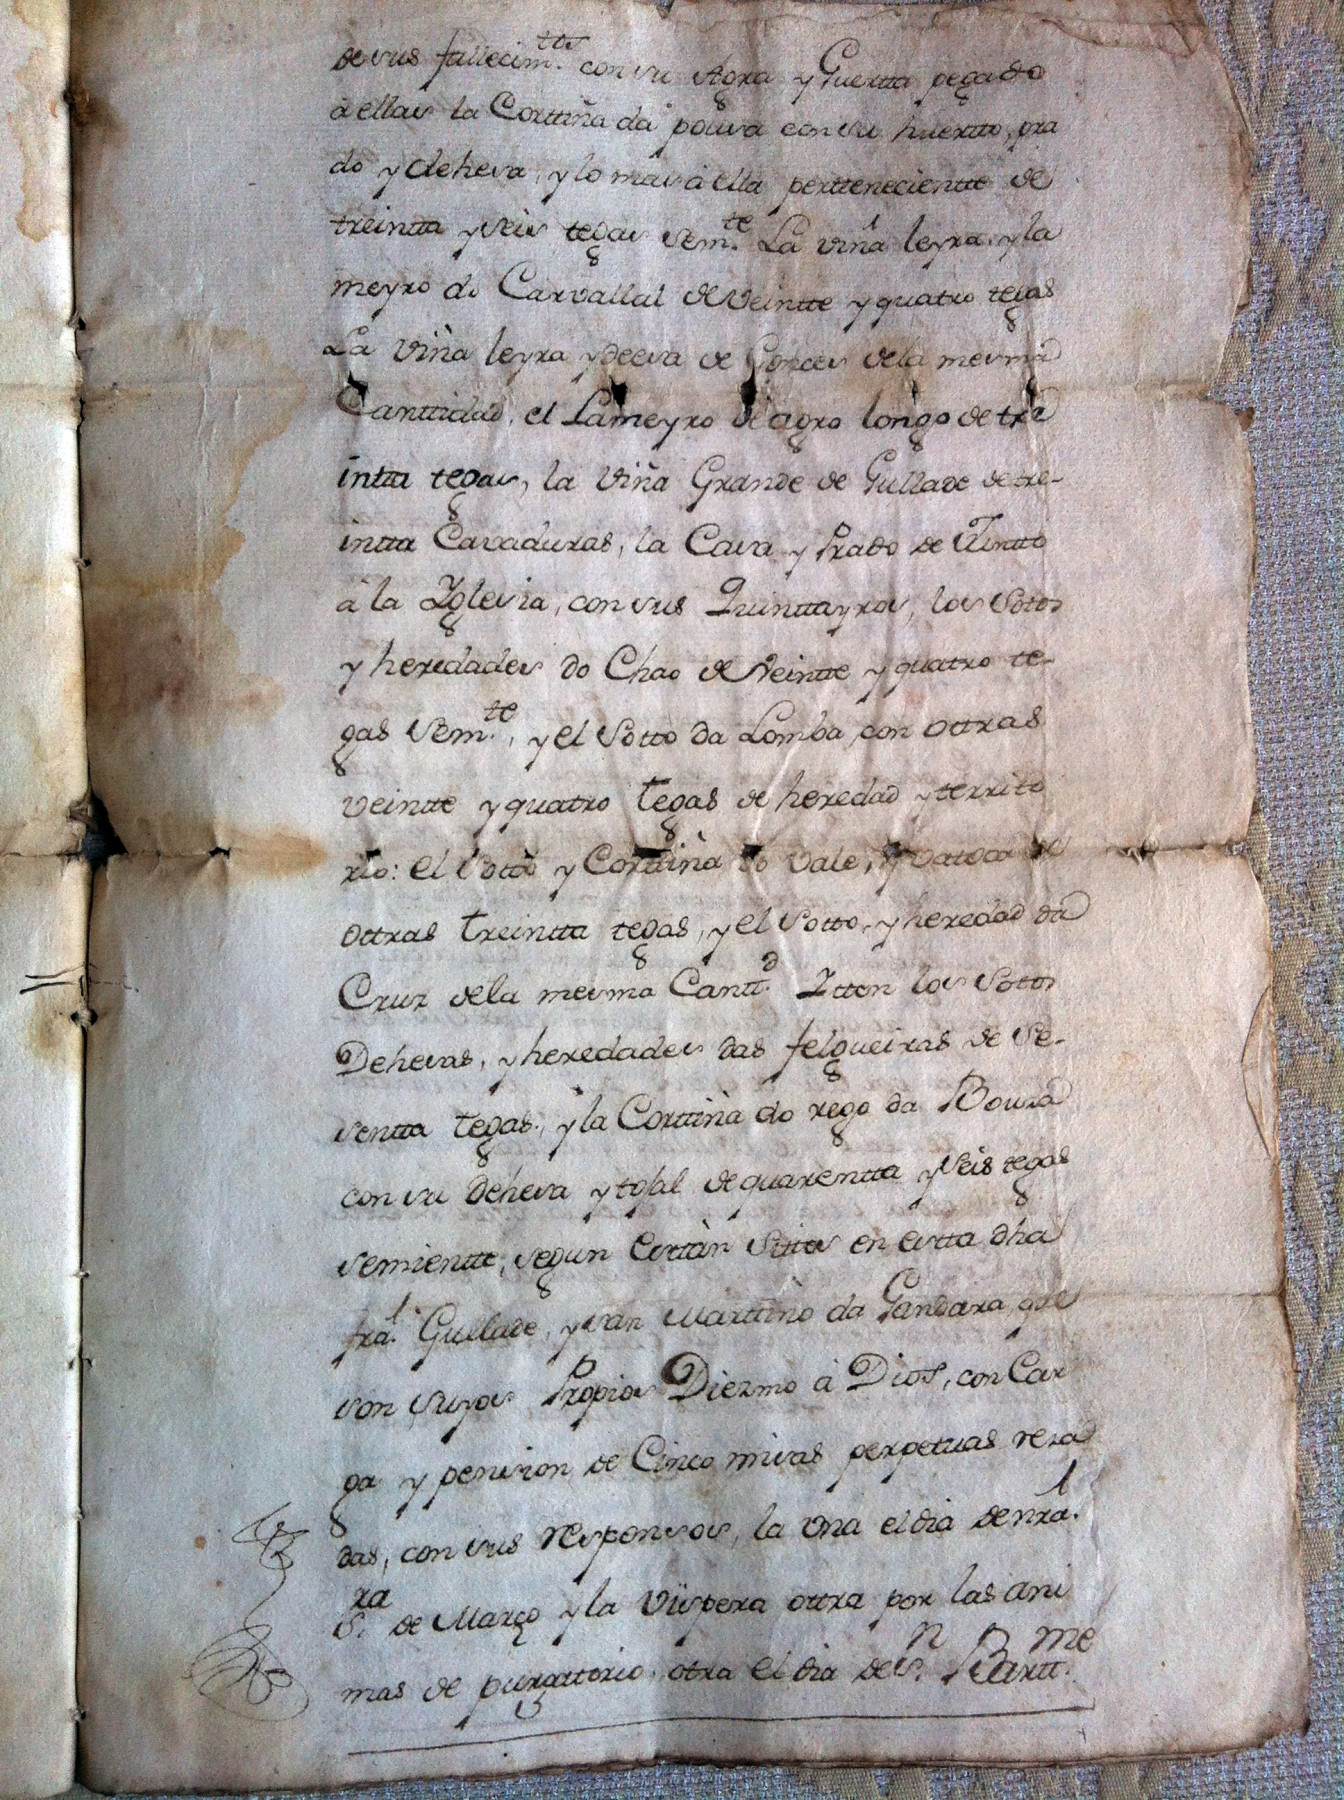 de sus fallecim.ttos con su Agra y Guertta pegado
à ellas la Corttiña dá pousa con su huertto, pra
do y dehesa, y lo mas à ella perttenecientte de
treintta y seis tegas sem.te La viña leyra, y la
meyro do Carvallal de Veintte y quatro tegas
La Viña leyra y deesa de de la mesma
Canttidad, el Lameyro de agro longo de tre
intta tegas, la Viña Grande de Gullade de tre-
intta Cavaduras, la Casa y Prado de
à la Yglesia, con sus Quinttayros, los Sotos
y heredades do Chao de Veintte y quatro te-
gas Sem.te, y el Sotto da Lomba con ottras
veintte y quatro tegas de heredad y territo
rio: el Sotto y Corttiña do Vale, y
ottras treintta tegas, y el Sotto, y heredad da
Cruz de la mesma Cantt.d Ytten los Sottos
Dehesas, y heredades das felgueiras de se-
sentta tegas, y la Corttiña do rego da Bouza
con su dehesa y tojal de quarentta y seis tegas
semientte, segun esttàn Sittos en estta dha
fra.l Gullade, y san Marttiño da Gandara, que
son suyos Propios Diezmo à Dios, con Car
ga y pension de Cinco misas perpetuas reza
das, con sus responsos, la una el dia de nra.l
S.ra de Março y la Vispera ottra por las ani
mas de purgattorio, otra el dia de S.n Bartt.me